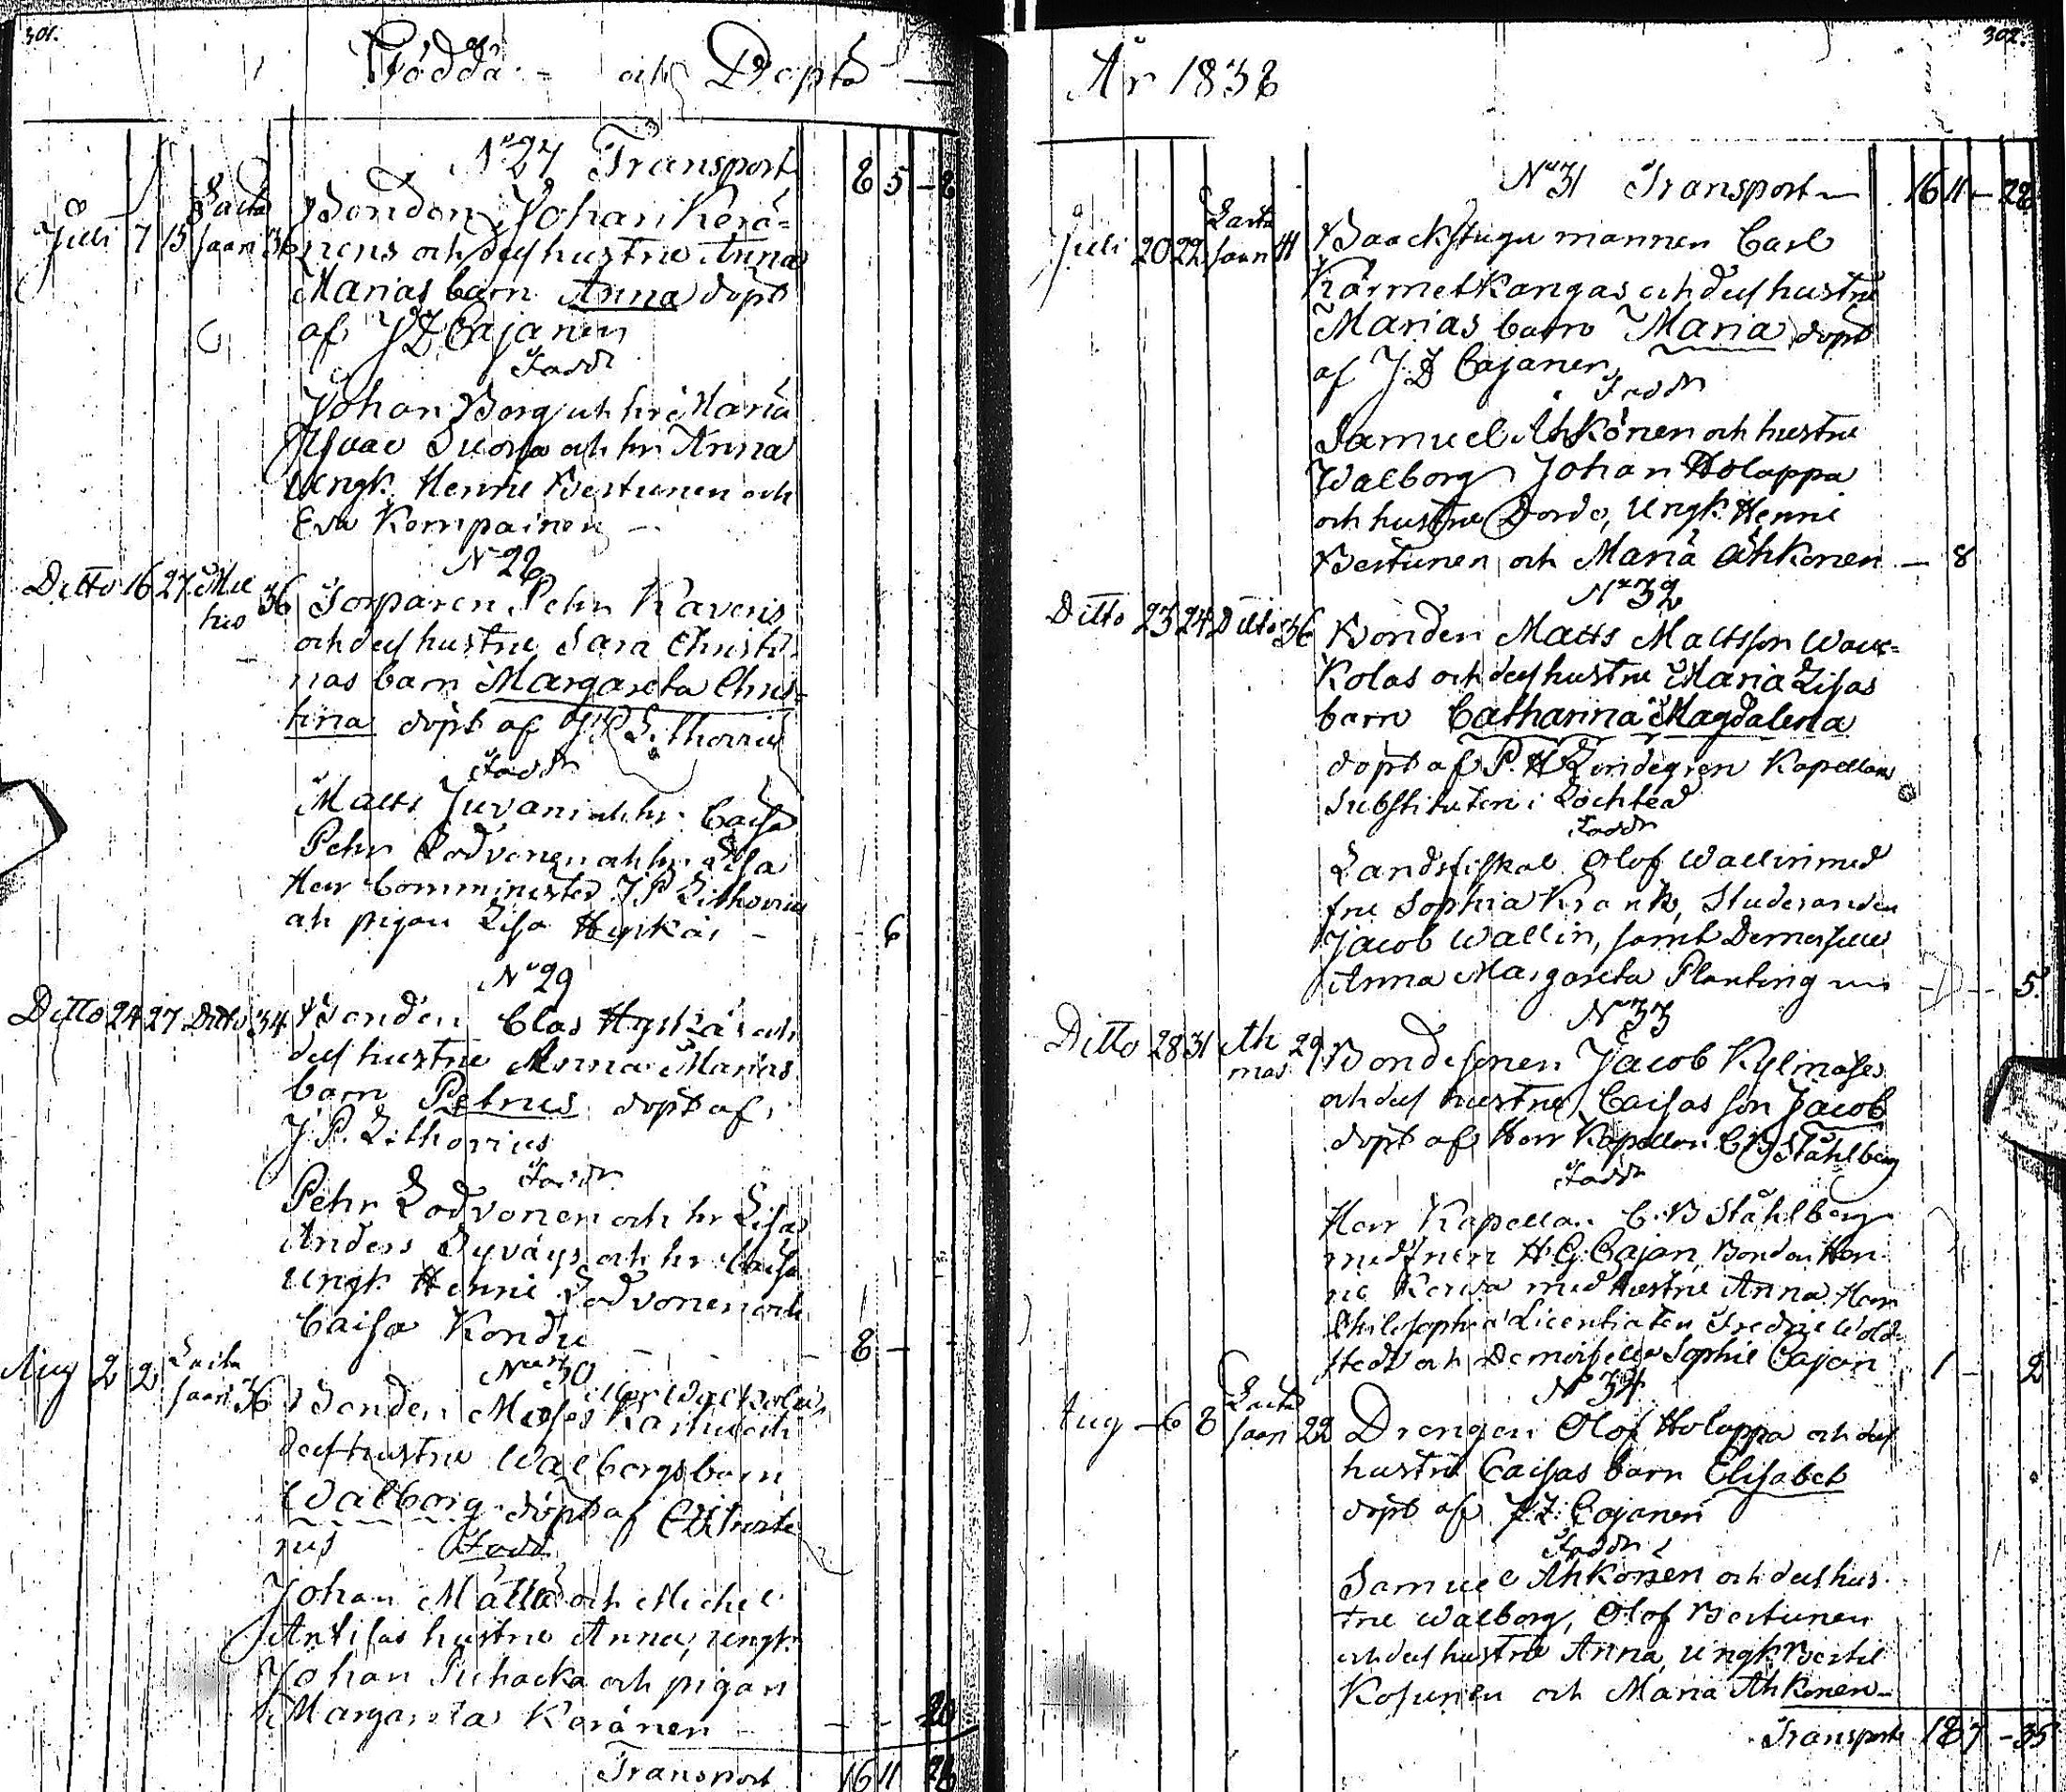 301.
Födda och Döpta
N:o 27 Transport 8 5 - 8
Juli 7 15 Saeta saari 36 Bonden Johan Kerä=
nens och dess hustru Anna
Marias barn Anna döpt
af J Z Cajanen
Fadd:r
Johan Borg och hr Maria
Isaac Suorsa och hr Anna
Ungk. Henric Bertunen och
Eva Kempainen
N:o 28
Ditto 16 27 36 Torparen Pehr Kaveris
och dess hustru Sara Christi
nas barn Margareta Chris=
tina döpt af J P Lithovius
Fadd:r
Matts Juvani och hr Caisa
Pehr Lodvonen och hr Lisa
Herr Comminister J P Lithovius
och pigan Lisa Hyrkäs - - 6
N:o 29
Ditto 24 27 Ditto 34 Bonden Clas Hyrkäs och
dess hustru Anna Marias
barn Petrus döpt af
J. P. Lithovius
Fadd:r
Pehr Lodvonen och hr Lisa
Anders Syväys och hr Caisa
Ungk Henric Lodvonen och
Caisa Kondu - - 8 -
N:o 30
Aug 2 2 Saeta saari 36 Bonden Moses
dess hustru Walborgs barn
Walborg döpt af
rus Fadd
Johan Mätta och Michel
Antilas hustru Anna, ungk.
Johan Pichacka och pigan
Margareta Keränen - - 20
Transport 16 11 28
302.
År 1838
N:o 31 Transport 16 11 - 28
Juli 20 22 Saeta saari 41 Backstugu mannen Carl
Kärmetkangas och dess hustru
Marias barn Maria döpt
af J Z Cajanen
Fadd:r
Samuel Ahkönen och hustru
Walborg Johan Holappa
och hustru Dordo, Ungk. Henric
Bertunen och Maria Ahkonen - 8
N:o 32
Ditto 23 24 Ditto 36 Bonden Matts Mattsson Wack=
kolas och dess hustru Maria Lisas
barn Catharina Magdalena
döpt af P. H Lindegren Kapellans
Substituten i Lochteå
Fadd:r
Landsfiskal Olof Wallin med
fru Sophia Krank, Studeranden
Jacob Wallin, samt Demoiselle
Anna Margareta Planting - - 5.
N:o 33
Ditto 28 31 29 Bondesonen Jacob Kylmäses
och dess hustru Caisas son Jacob
döpt af Herr Kapellan C B Ståhlberg
Fadd:r
Herr Kapellan C. B Ståhlberg
med fruen H. G. Cajan, Bonden Hen
ric Kerva med hustru Anna Herr
Philosophiæ Licentiaten Fredric Wold
stedt och Demoiselle Sophie Cajan 1 - 2
N:o 34
Aug 6 8 Saeta saari 22 Drengen Olof Holappa och dess
hustru Caisas barn Elisabet
döpt af J. Z. Cajanen
Fadd:r
Samuel Ahkonen och dess hus
tru Walborg, Olof Bertunen
och dess hustru Anna, ungk. Bertil
Kosunen och Maria Ahkonen
Transport 18 7 - 35